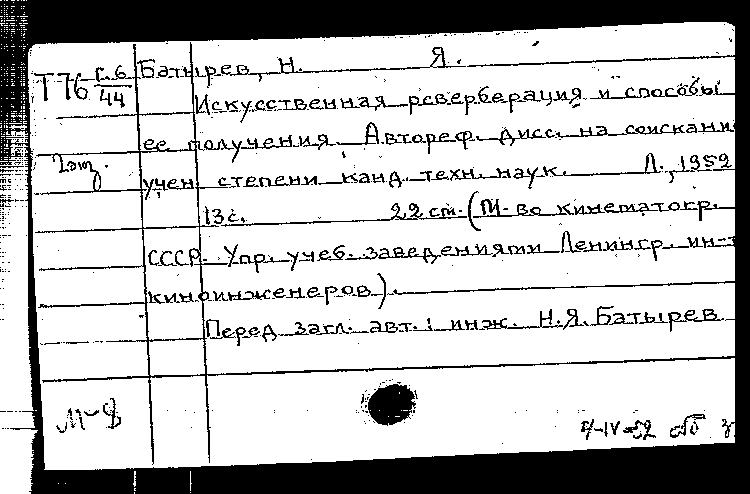 Т76 Г.6/44 Батырев, Н. Я.
Искусственная реверберация и способы
ее получения. Автореф. дисс. на соискани
2 отд.
учен. степени канд. техн. наук. Л., 1952
13 с. 22 см. (М-во кинематогр.
СССР. Упр. учеб. заведениями Ленингр. ин-т
киноинженеров).
Перед загл. авт.: инж. Н.Я. Батырев
М-8
-IV-52